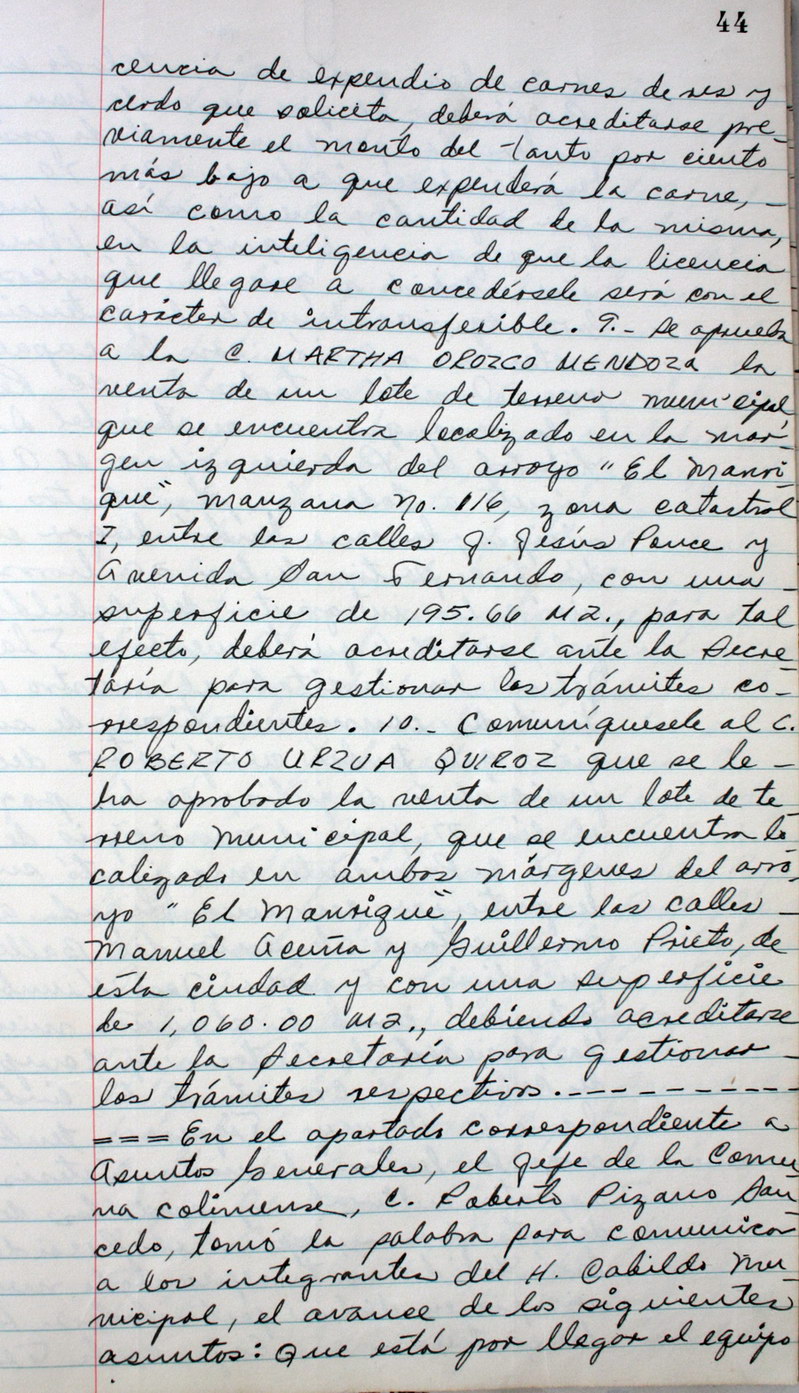 44
cencia de expendio de carnes de res y
cerdo que solicita, deberá acreditarse pre-
viamente el monto del tanto por ciento
más bajo a que expenderá la carne, -
así como la cantidad de la misma,
en la inteligencia de que la licencia
que llegare a concedérsele será con el
carácter de intransferible. 9.- Se aprueba
a la C. MARTHA OROZCO MENDOZA la
venta de un lote de terreno municipal,
que se encuentra localizado en la mar-
gen izquierda del arroyo "El Manri-
que", manzana No. 116, zona catastral
I, entre las calles J. Jesús Ponce y
Avenida San Fernando, con una -
superficie de 195.66 M2., para tal
efecto, deberá acreditarse ante la Secre-
taría para gestionar los trámites co-
rrespondientes. 10.- Comuníquesele al C.
ROBERTO URZUA QUIROZ que se le -
ha aprobado la venta de un lote de te
rreno municipal, que se encuentra lo
calizado en ambos márgenes del arro-
yo "El Manrique", entre las calles -
Manuel Acuña y Guillermo Prieto, de
ésta ciudad y con una superficie
de 1,060.00 M2., debiendo acreditarse
ante la Secretaría para gestionar -
los trámites respectivos.----------
===En el apartado correspondiente a
Asuntos Generales, el Jefe de la Comu-
na colimense, C. Roberto Pizano Sau-
cedo, tomó la palabra para comunicar
a los integrantes del H. Cabildo Mu-
nicipal, el avance de los siguientes
asuntos: Que está por llegar el equipo